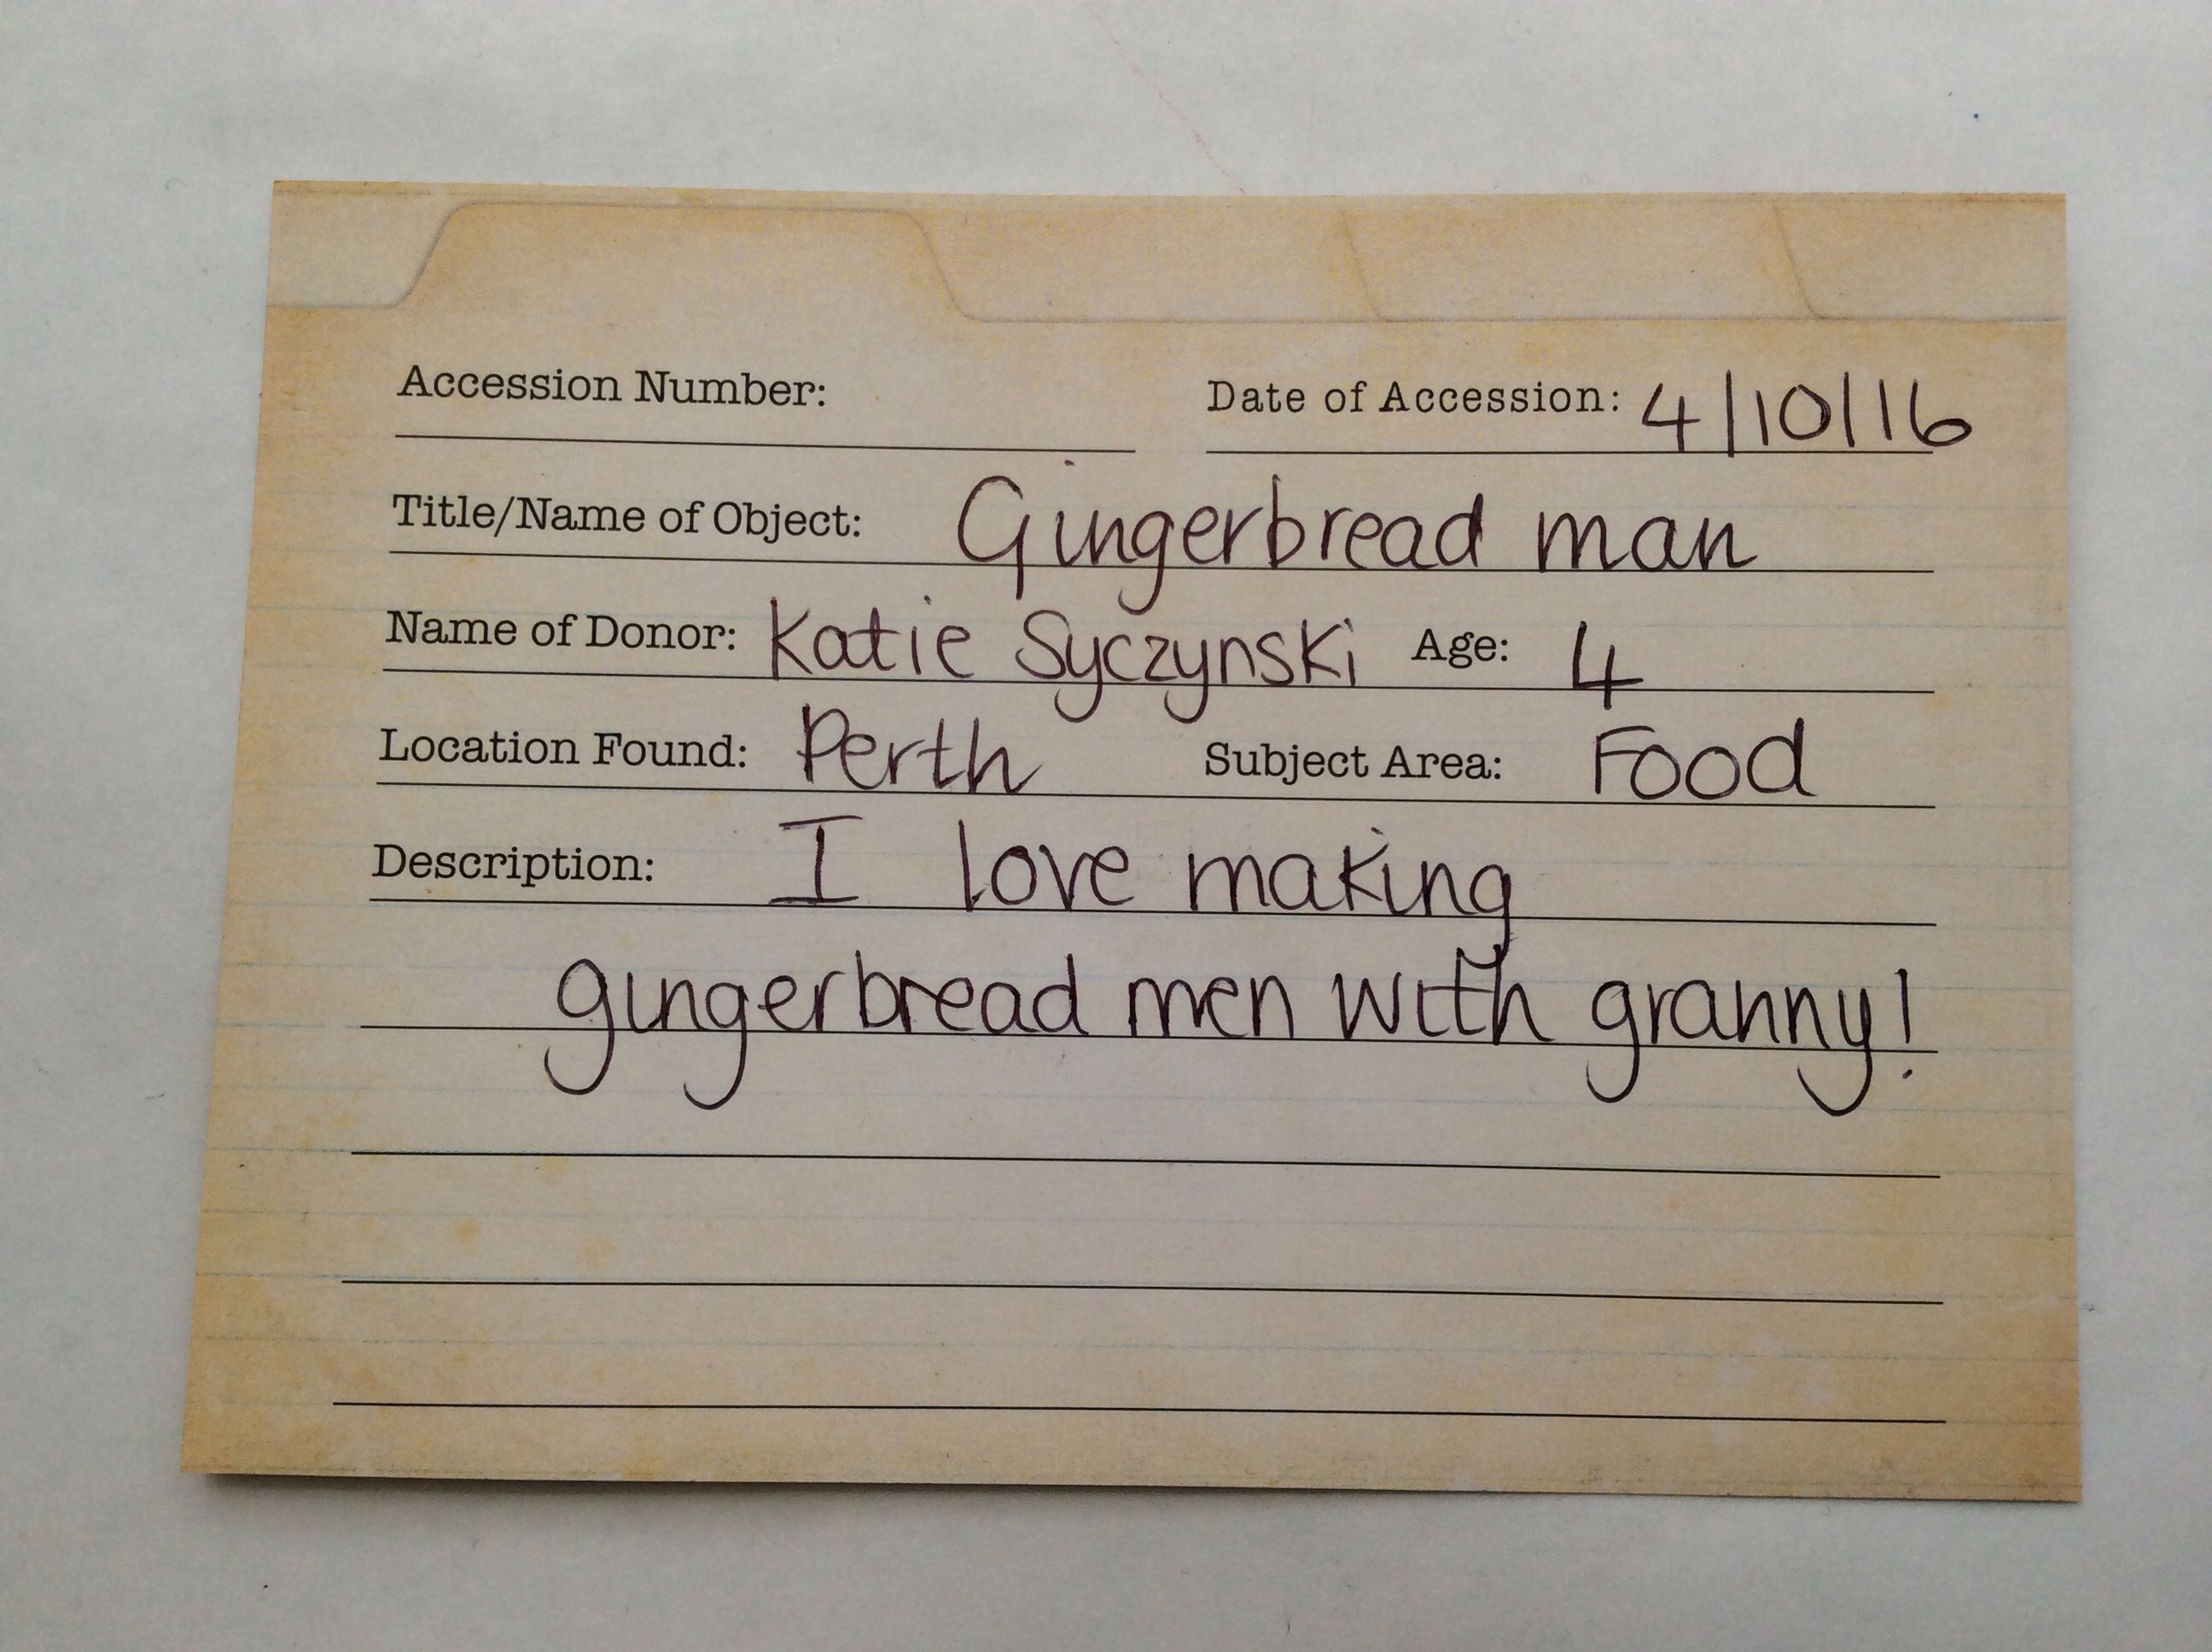 Accession Number: Date of Accession: 4/10/16
Title/Name of Object: Gingerbread man
Name of Donor: Katie Syczynski Age: 4
Location Found: Perth Subject Area: Food
Description: I love making
gingerbread men with granny!